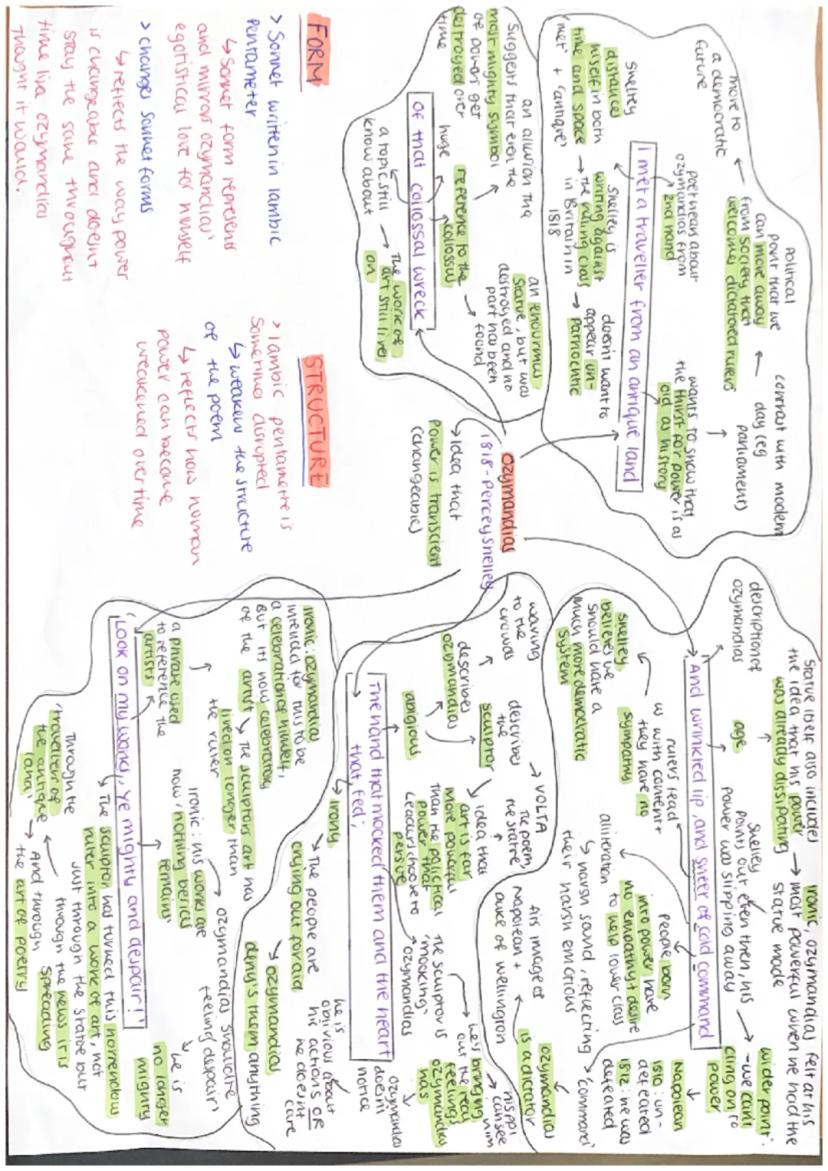 Ozymandias
1818 - Percey Shelley
↳ Idea that
Power is transcient
(changeable)
political
point that we
can move away
from society that
welcomes dictatored rulers
move to
a democratic
future
contrast with modern
day (eg
parliament)
wants to show that
the thirst for power is as
old as history
poet hean about
ozymandias from
2nd hand
I met a traveller from an antique land
Shelley
distances
himself in both
time and space
'met' + 'antique'
Shelley is
writing against
→ the ruling class
in Britain in
1818
doesn't want to
appear un-
patriotic
an allusion the
Suggests that even the
most mighty symbol
of power get
destroyed over
time
reference to the
colossus
huge
an enourmus
statue, but was
destroyed and no
part has been
found
Of that colossal wreck
a topic still
know about
→ The work of
art still lives
on
FORM
> Sonnet written in Iambic
pentameter
↳ Sonnet form represents
and mirrors ozymandias'
egotistical love for himself
> changes sonnet forms
↳ reflects the way power
is changeable and doesnt
stay the same throughout
time like ozymandias
thought it would.
STRUCTURE
> Iambic pentametre is
sometimes disrupted
↳ weakens the structure
of the poem
↳ reflects how human
power can become
weakened overtime
Statue itself also includes
the idea that his power
was already dissipating
Ironic, ozymandias felt at his
→ most powerful when he had the
statue made
wider point:
- we can't
cling on to
power
Shelley
points out even then, his
power was slipping away
description of
ozymandias
age
And wrinkled lip, and sneer of cold command
Shelley
believes we
should have a
much more democratic
system
rulers lead
us with contempt
they have no
sympathy
people born
into power have
no empathy + desire
to help lower class
alliteration
↳ harsh sound, reflecting
their harsh emotions
'command'
Napolean
1810: un-
defeated
1812: he was
defeated
ozymandias
is a dictator
his image of
Napolean +
duke of wellington
waving
to the
crowds
describes
ozymandias
describes
the
sculptor
→ VOLTA
The poem,
the statue,
→ idea that
art is far
more powerful
than the political
power that
leaders choose to
persue
abigious
The sculptor is
'mocking'
ozymandias
he's bringing
out the real
feelings
ozymandias
has
ozymandias
doesn't
notice
The hand that mocked them and the heart
that fed;
↳ Irony
→ The people are
crying out for aid
↳ ozymandias
deny's them anything
he is
oblivious about
his actions OR
he doesnt
care
Ironic: ozymandias
intended for this to be
a celebration of himself,
But its now celebrating
of the artist
↳ The sculptors art has
lived on longer than
the ruler
Ironic: his works are
now, 'nothing besides
remains'
ozymandias should be
feeling 'despair'
↳ he is
no longer
mighty
a phrase used
to reference the
artists
'Look on my works, ye mighty and despair!'
↳ The sculptor has turned this horrendous
ruler into a work of art, not
just through the statue but
through the news it is
spreading
Through the
'traveller of
the antique
land'
→ And through
the art of poetry